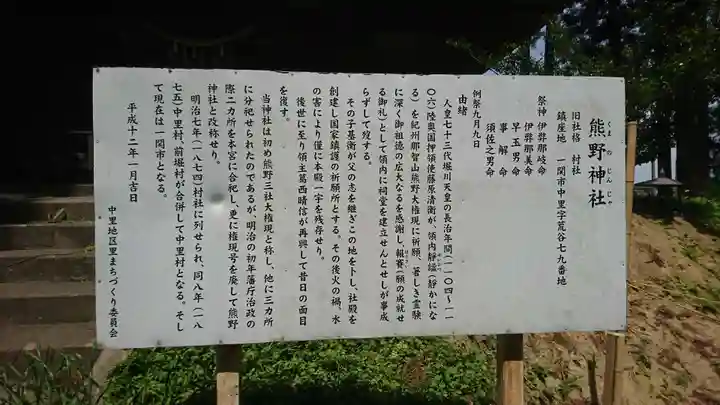 熊野神社
くまのじんじゃ
旧社格　村社
鎮座地　一関市中里字荒谷七九番地
祭神　伊弉那岐命
伊弉那美命
早玉男命
事解命
須佐之男命
例祭九月九日
由緒
人皇七十三代堀川天皇の長治年間(一一〇四〜一一
〇六)陸奥国押領使藤原清衡が、領内靜謐(静かにな
る)を紀州那智山熊野大権現に祈願、著しき霊験
に深く御祖徳の広大なるを感謝し、報賽(願の成就せ
る御礼)として領内に祠堂を建立せんとせしが事成
らずして歿する。
その子基衡が父の志を継ぎこの地を卜し、社殿を
創建し国家鎮護の祈願所とする。その後火の禍、水
の害により僅に本殿一宇を残存せり。
後世に至り領主葛西晴信が再興して昔日の面目
を復す。
当神社は初め熊野三社大権現と称し、他に三カ所
に分祀せられたのであるが、明治の初年藩庁治政の
際二カ所を本宮に合祀し、更に権現号を廃して熊野
神社と改称せり。
明治七年(一八七四)村社に列せられ、同八年(一八
七五)中里村、前堀村が合併して中里村となる。そし
て現在は一関市となる。
平成十二年一月吉日
中里地区里まちづくり委員会